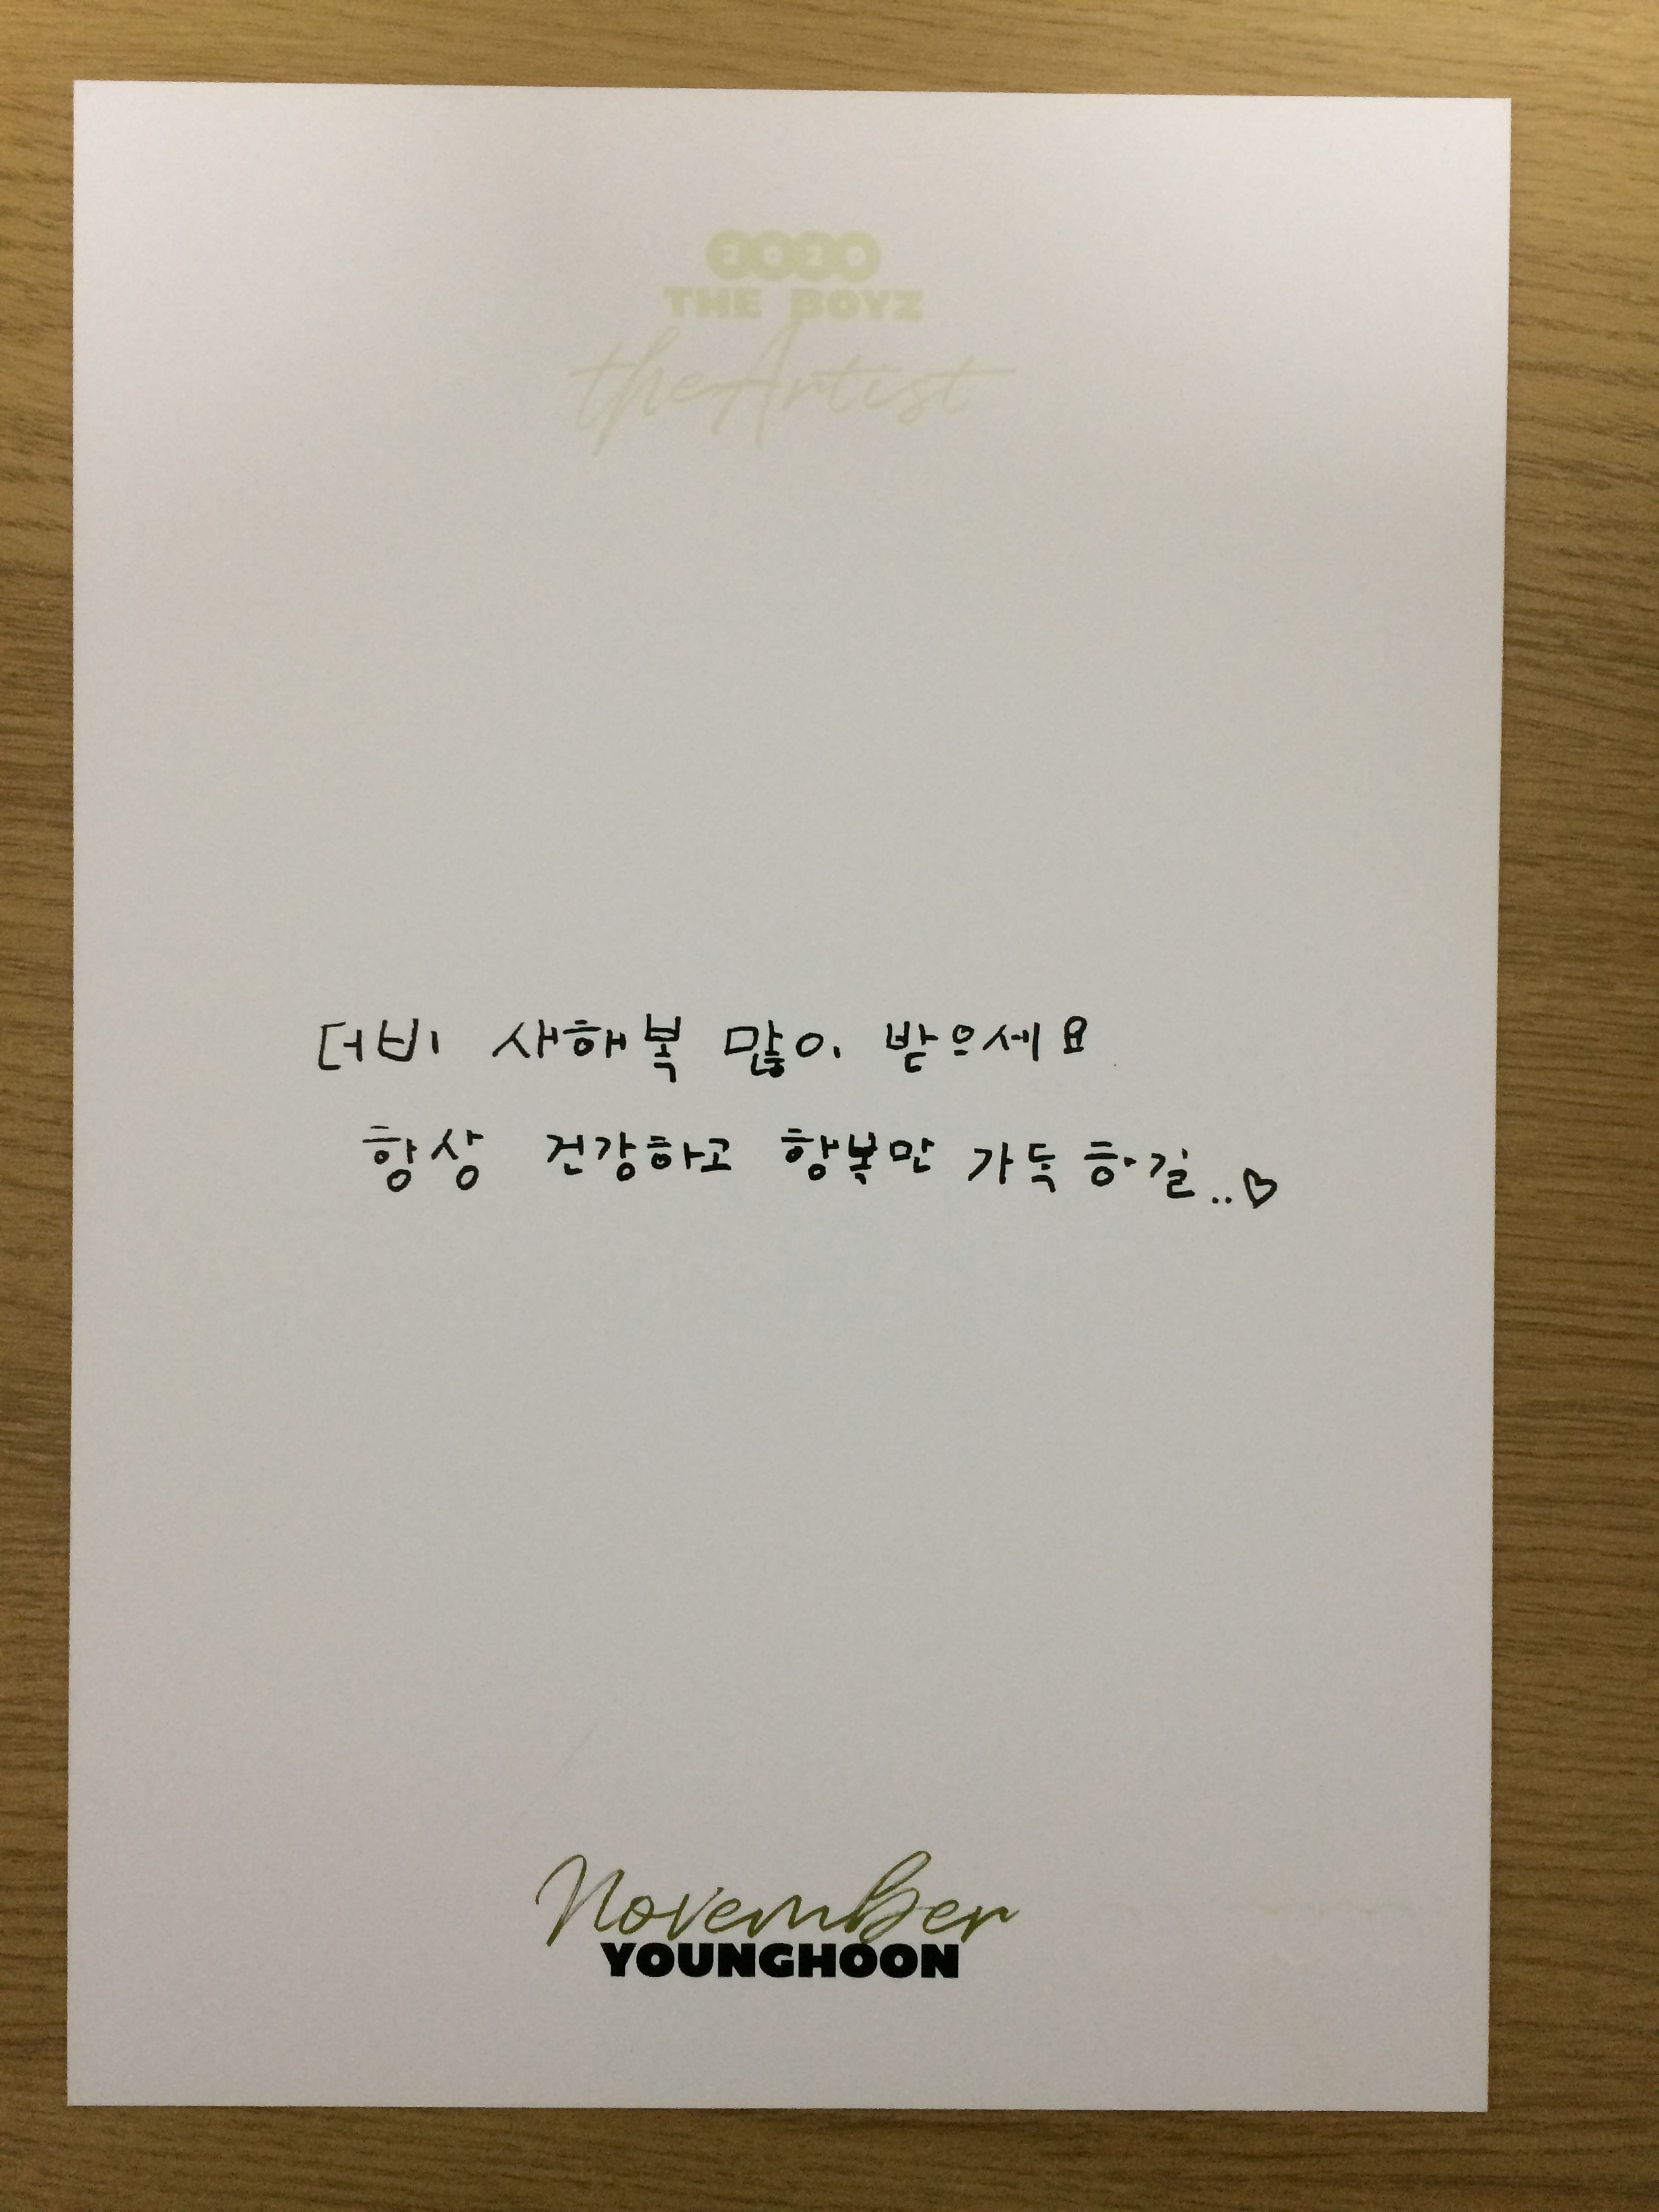 2020
THE BOYZ
the Artist
더비 새해복 많이 받으세요
항상 건강하고 항복만 가득 하길..♡
November
YOUNGHOON